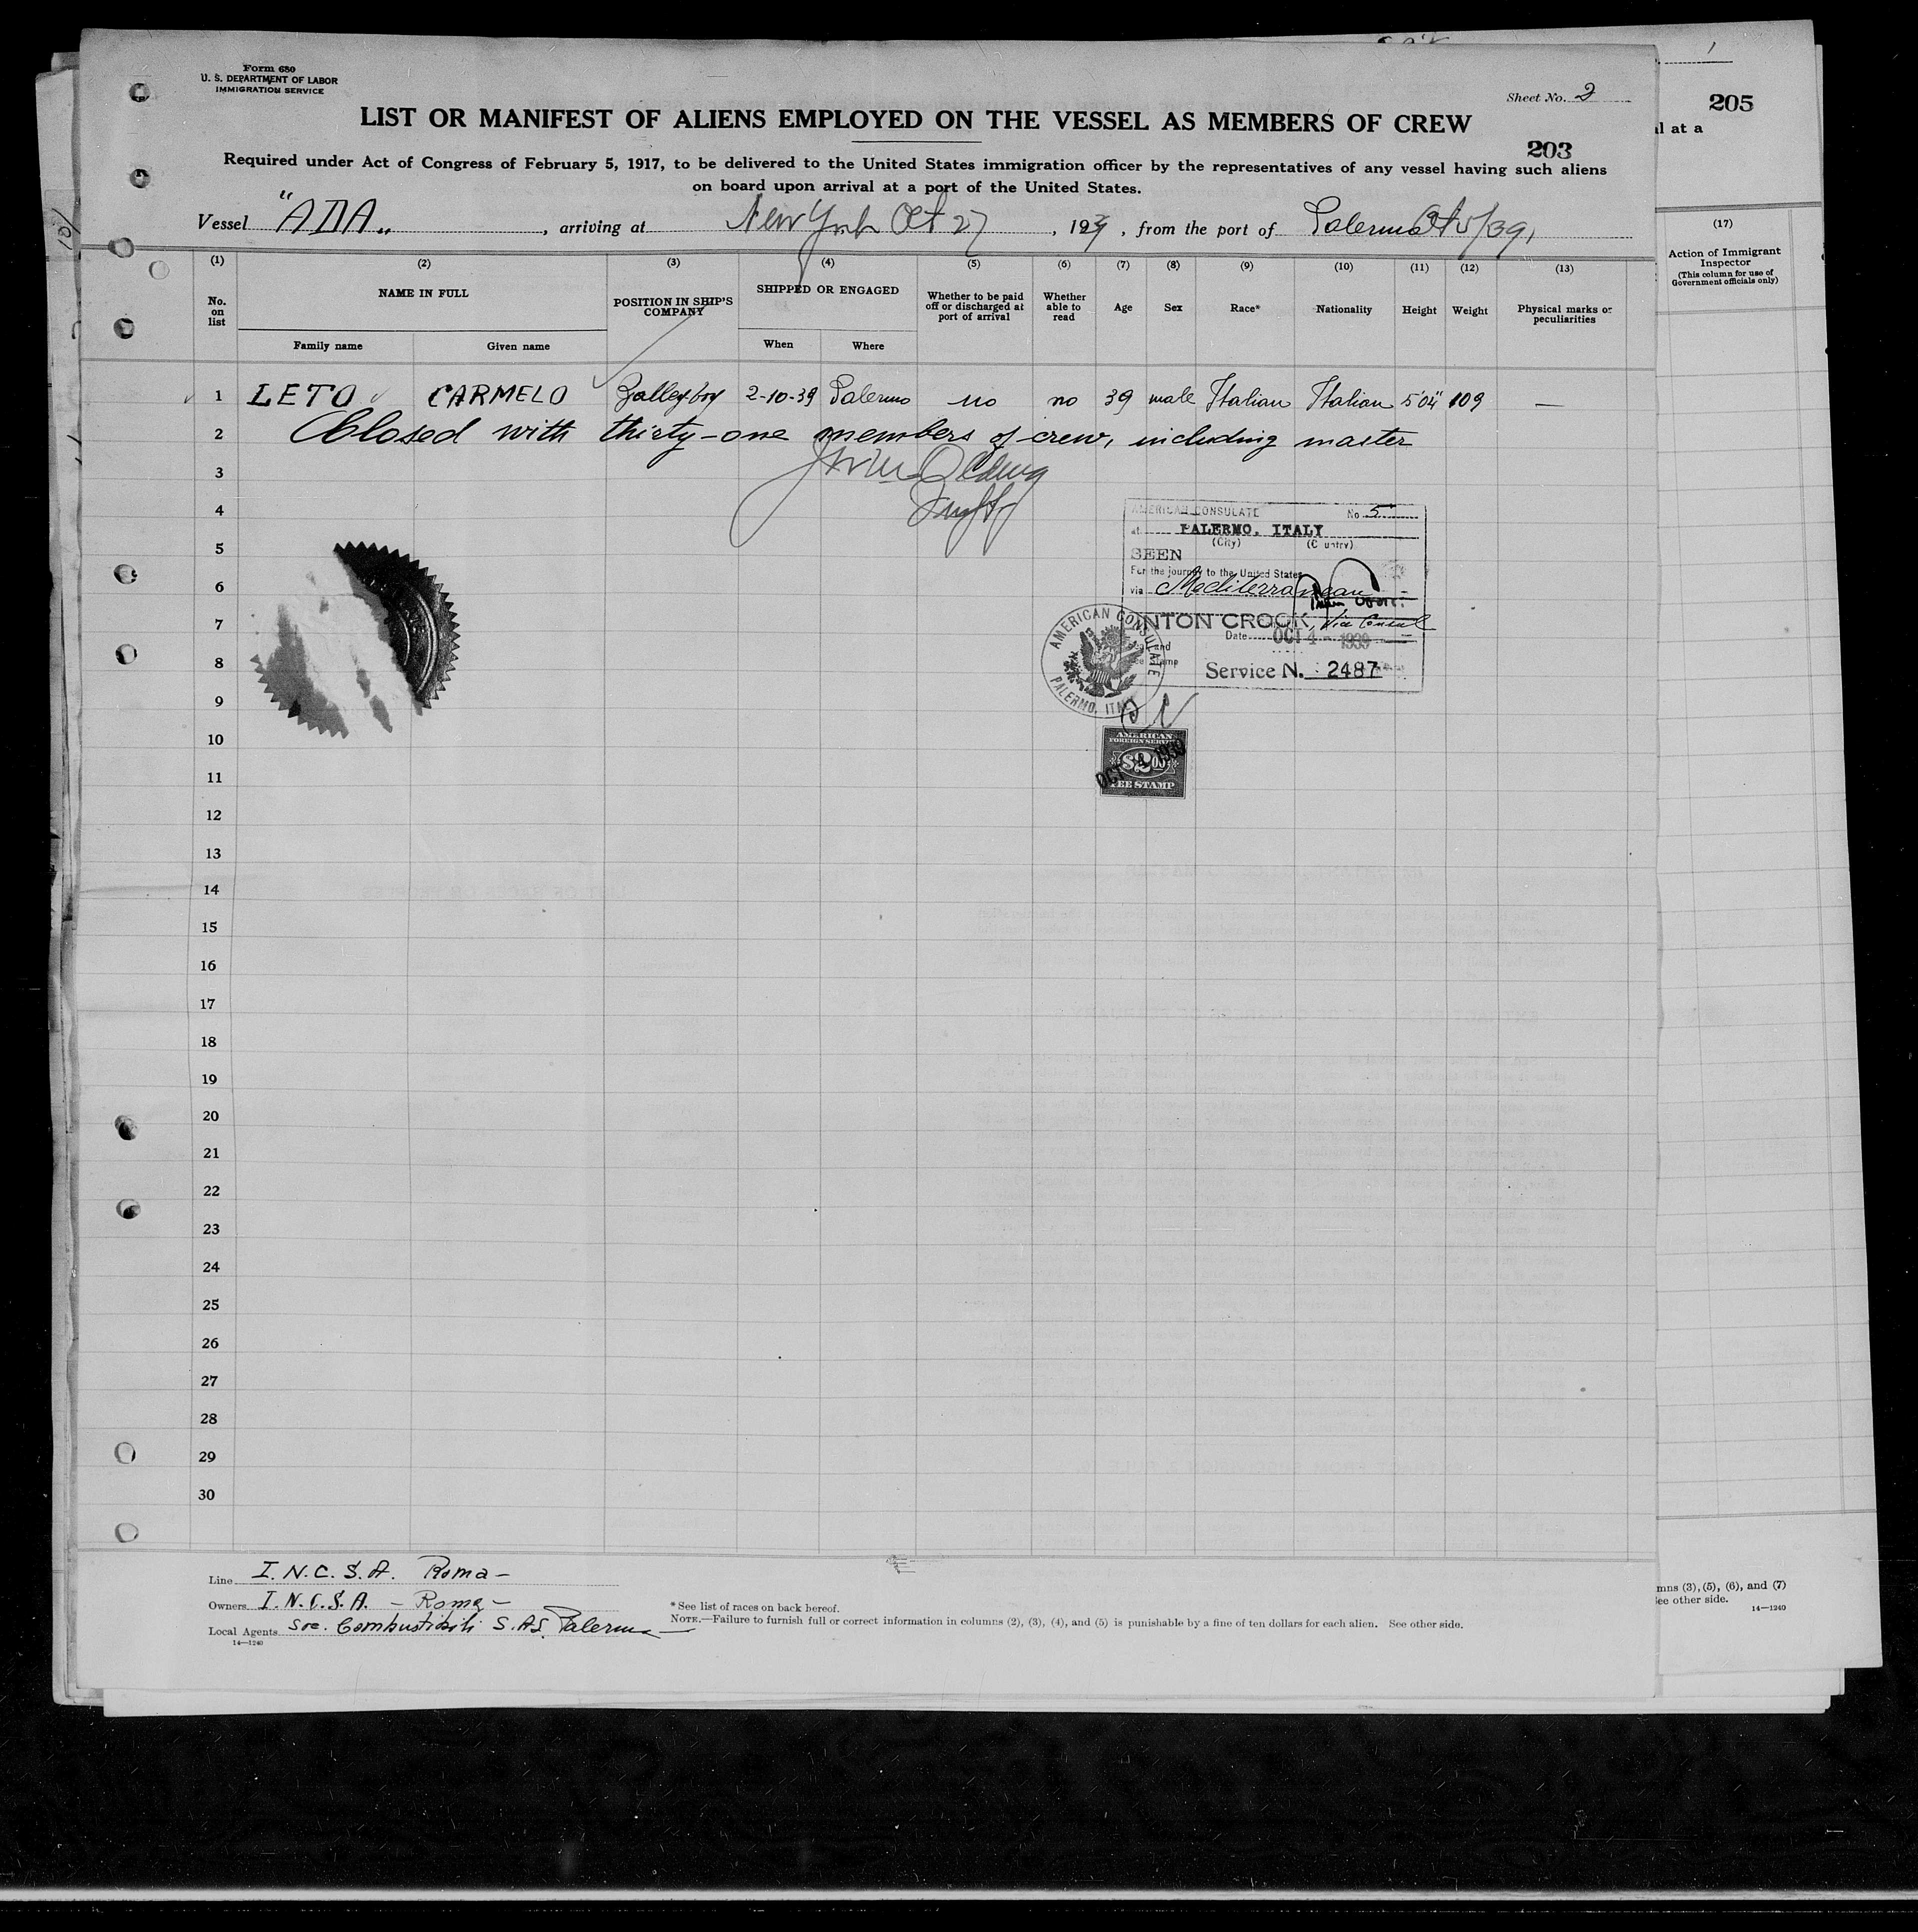 Form 680
U. S. DEPARTMENT OF LABOR
IMMIGRATION SERVICE
Sheet No. 2
LIST OR MANIFEST OF ALIENS EMPLOYED ON THE VESSEL AS MEMBERS OF CREW
203
Required under Act of Congress of February 5, 1917, to be delivered to the United States immigration officer by the representatives of any vessel having such aliens
on board upon arrival at a port of the United States.
Vessel "ADA„, arriving at New York Oct 27, 1939, from the port of Palermo Oct 5/39,
(1) (2) (3) (4) (5) (6) (7) (8) (9) (10) (11) (12) (13)
No. on list
NAME IN FULL
Family name Given name
POSITION IN SHIP'S COMPANY
SHIPPED OR ENGAGED
When Where
Whether to be paid off or discharged at port of arrival
Whether able to read
Age Sex Race* Nationality Height Weight
Physical marks or peculiarities
1 LETO CARMELO Galley boy 2-10-39 Palermo no no 39 male Italian Italian 5'04" 109 —
2 Closed with thirty-one members of crew, including master
3
4
5
6
7
8
9
10
11
12
13
14
15
16
17
18
19
20
21
22
23
24
25
26
27
28
29
30
AMERICAN CONSULATE No. 5
at PALERMO, ITALY
(City) (Country)
SEEN
For the journey to the United States
via Mediterranean
INTON CROOK, Vice Consul
Date OCT 4 - 1939
Service N. 2487
AMERICAN CONSULATE
PALERMO, ITALY
AMERICAN
FOREIGN SERVICE
$2.00
FEE STAMP
OCT 4 1939
Line I. N. C. S. A. Roma -
Owners I. N. C. S. A. - Roma -
Local Agents Soc. Combustibili S.A.S. Palermo
14—1240
*See list of races on back hereof.
NOTE.—Failure to furnish full or correct information in columns (2), (3), (4), and (5) is punishable by a fine of ten dollars for each alien. See other side.
1
205
al at a
(17)
Action of Immigrant
Inspector
(This column for use of
Government officials only)
mns (3), (5), (6), and (7)
See other side.
14—1240